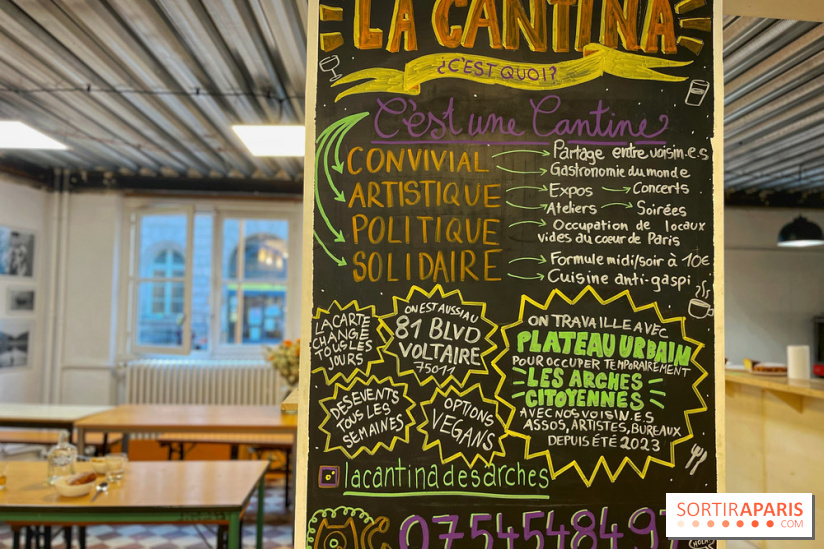 LA CANTINA
¿C'EST QUOI?
C'est une Cantine
CONVIVIAL
Partage entre voisin.e.s
Gastronomie du monde
ARTISTIQUE
Expos → Concerts
Ateliers → Soirées
POLITIQUE
Occupation de locaux
vides au cœur de Paris
SOLIDAIRE
Formule midi/soir à 10€
Cuisine anti-gaspi
LA CARTE
CHANGE
TOUS LES
JOURS
ON EST AUSSI AU
81 BLVD
VOLTAIRE
75011
DES EVENTS
TOUS LES
SEMAINES
OPTIONS
VEGANS
ON TRAVAILLE AVEC
PLATEAU URBAIN
POUR OCCUPER TEMPORAIREMENT
LES ARCHES
CITOYENNES
AVEC NOS VOISIN.E.S
ASSOS, ARTISTES, BUREAUX
DEPUIS ÉTÉ 2023
lacantinadesarches
SORTIRAPARIS
.COM